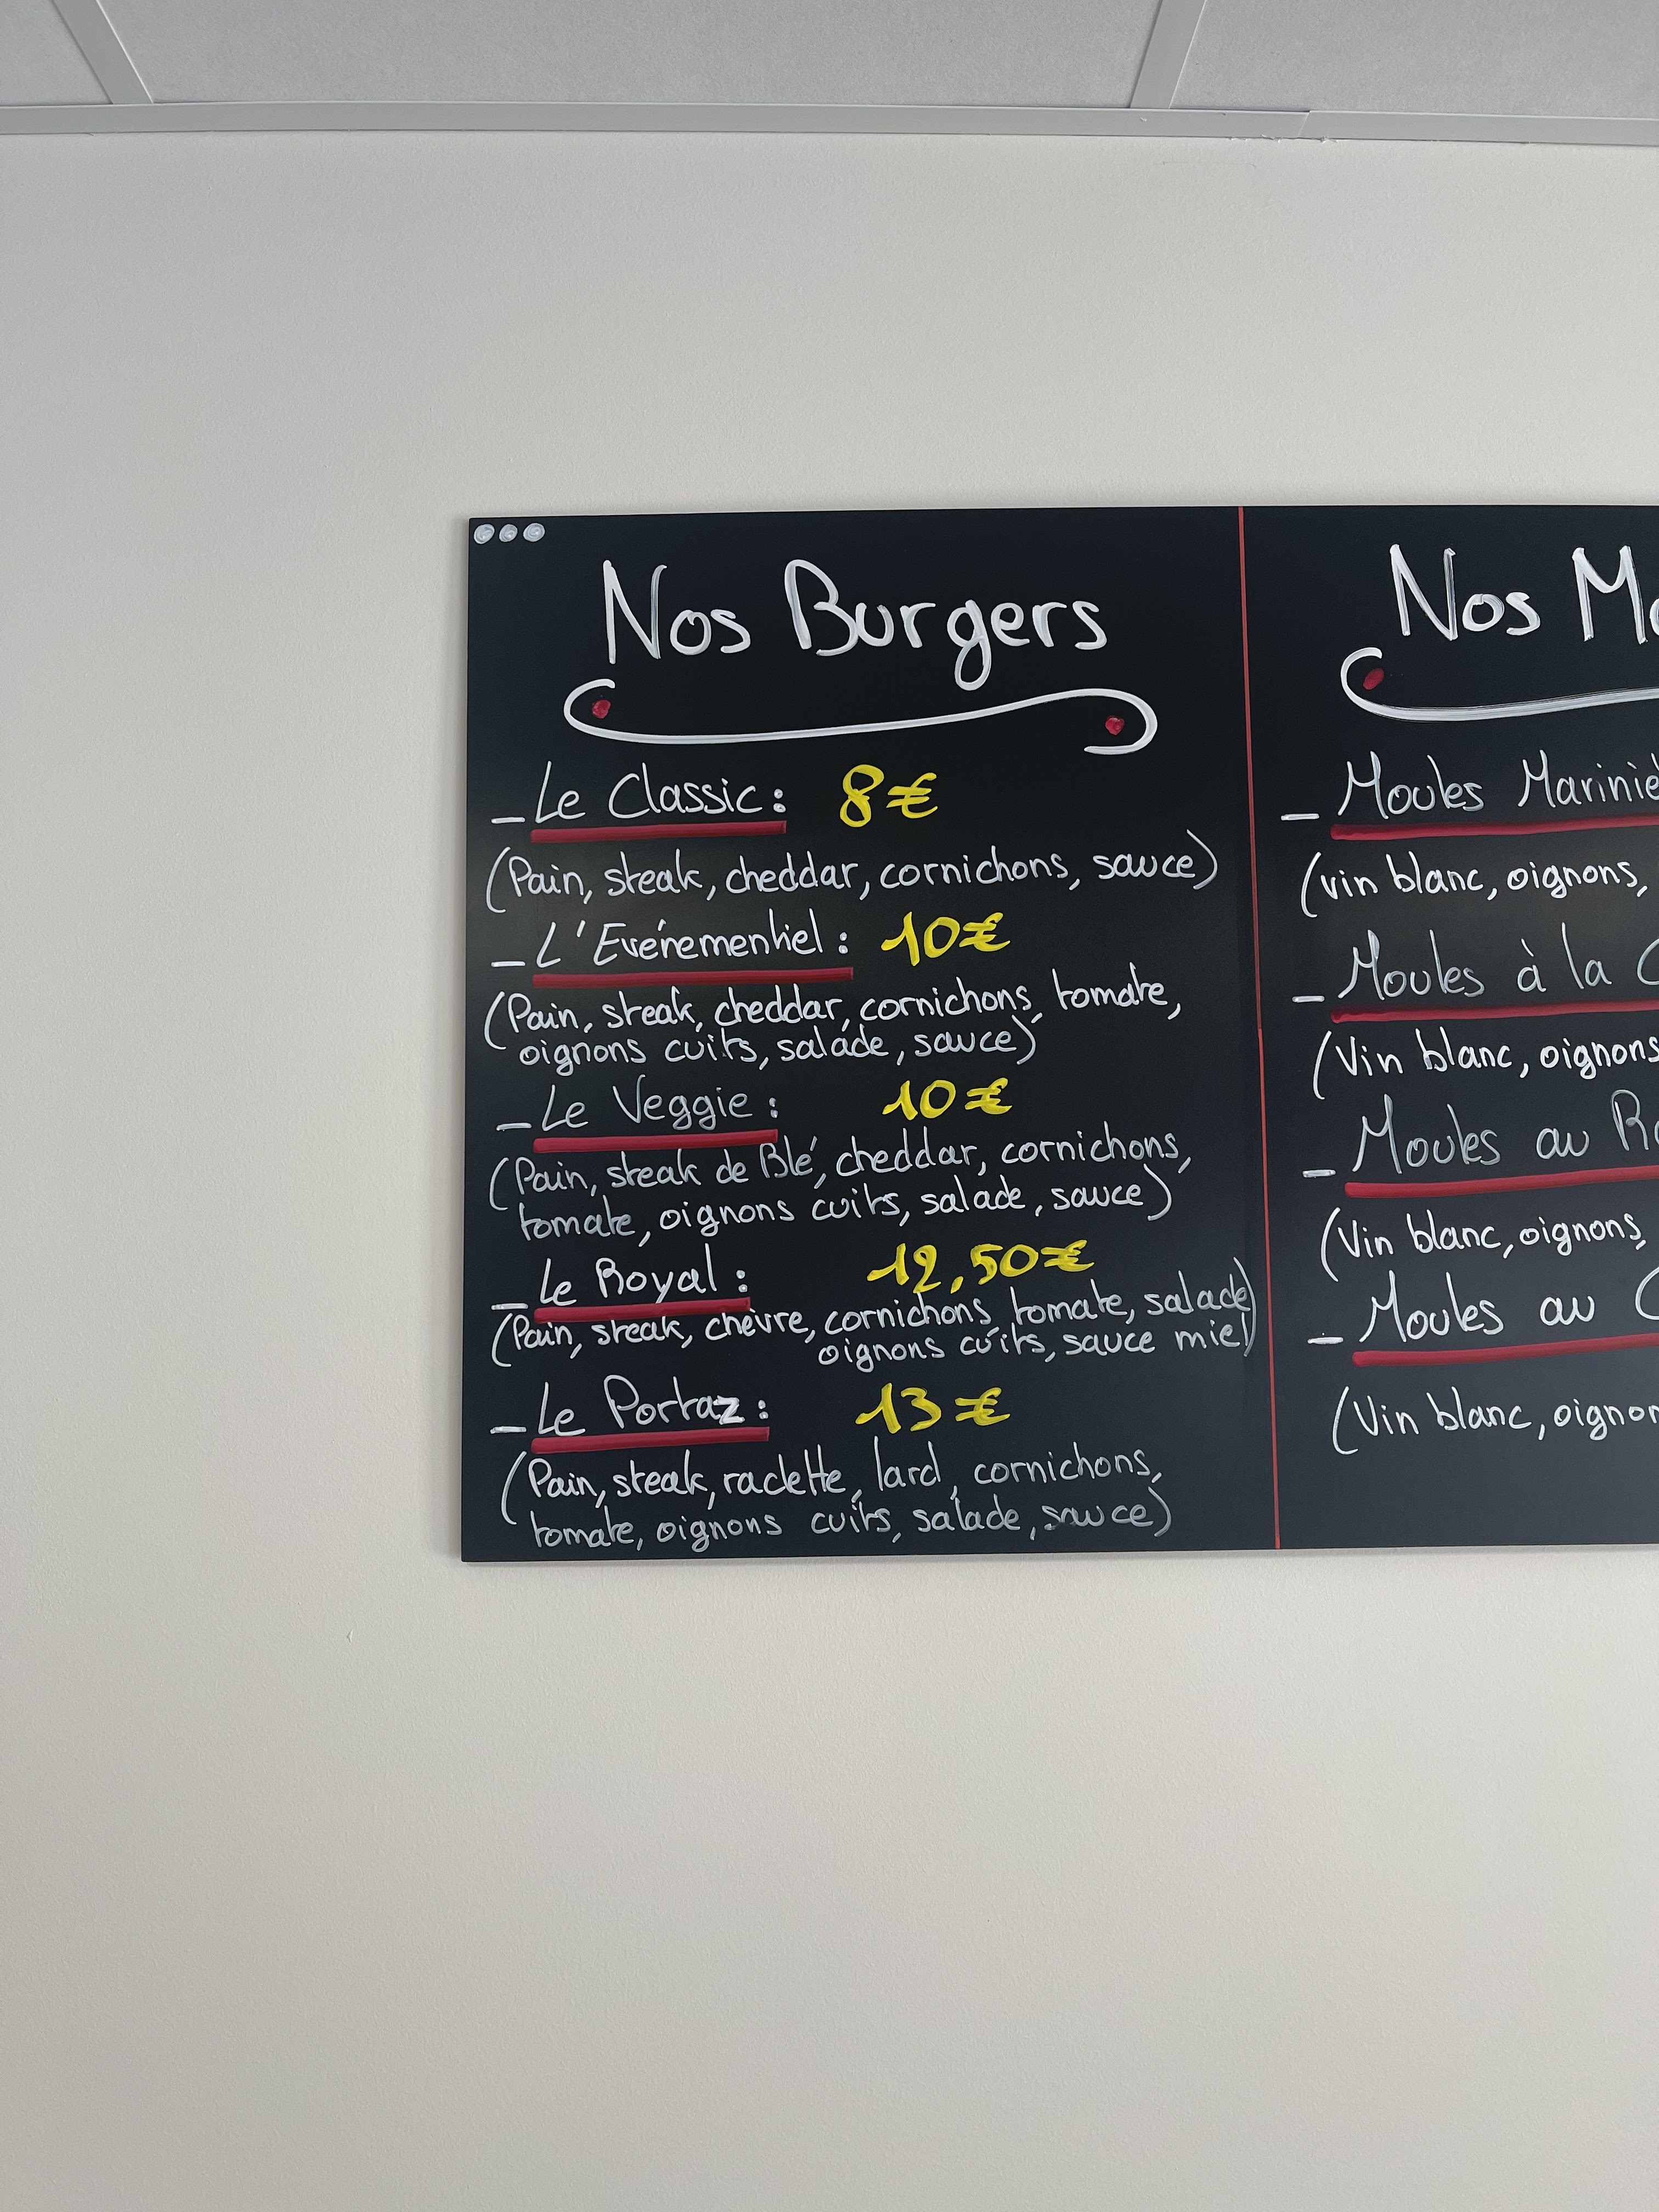 Nos Burgers
_ Le Classic : 8€
(Pain, steak, cheddar, cornichons, sauce)
_ L'Evénementiel : 10€
(Pain, steak, cheddar, cornichons, tomate,
oignons cuits, salade, sauce)
_ Le Veggie : 10€
(Pain, steak de Blé, cheddar, cornichons,
tomate, oignons cuits, salade, sauce)
_ Le Royal : 12,50€
(Pain, steak, chèvre, cornichons, tomate, salade)
oignons cuits, sauce miel)
_ Le Portaz : 13€
(Pain, steak, raclette, lard, cornichons,
tomate, oignons cuits, salade, sauce)
Nos
_ Moules
(vin blanc, oignons,
_ Moules à la
(Vin blanc, oignons
_ Moules au
(Vin blanc, oignons,
_ Moules au
(Vin blanc,